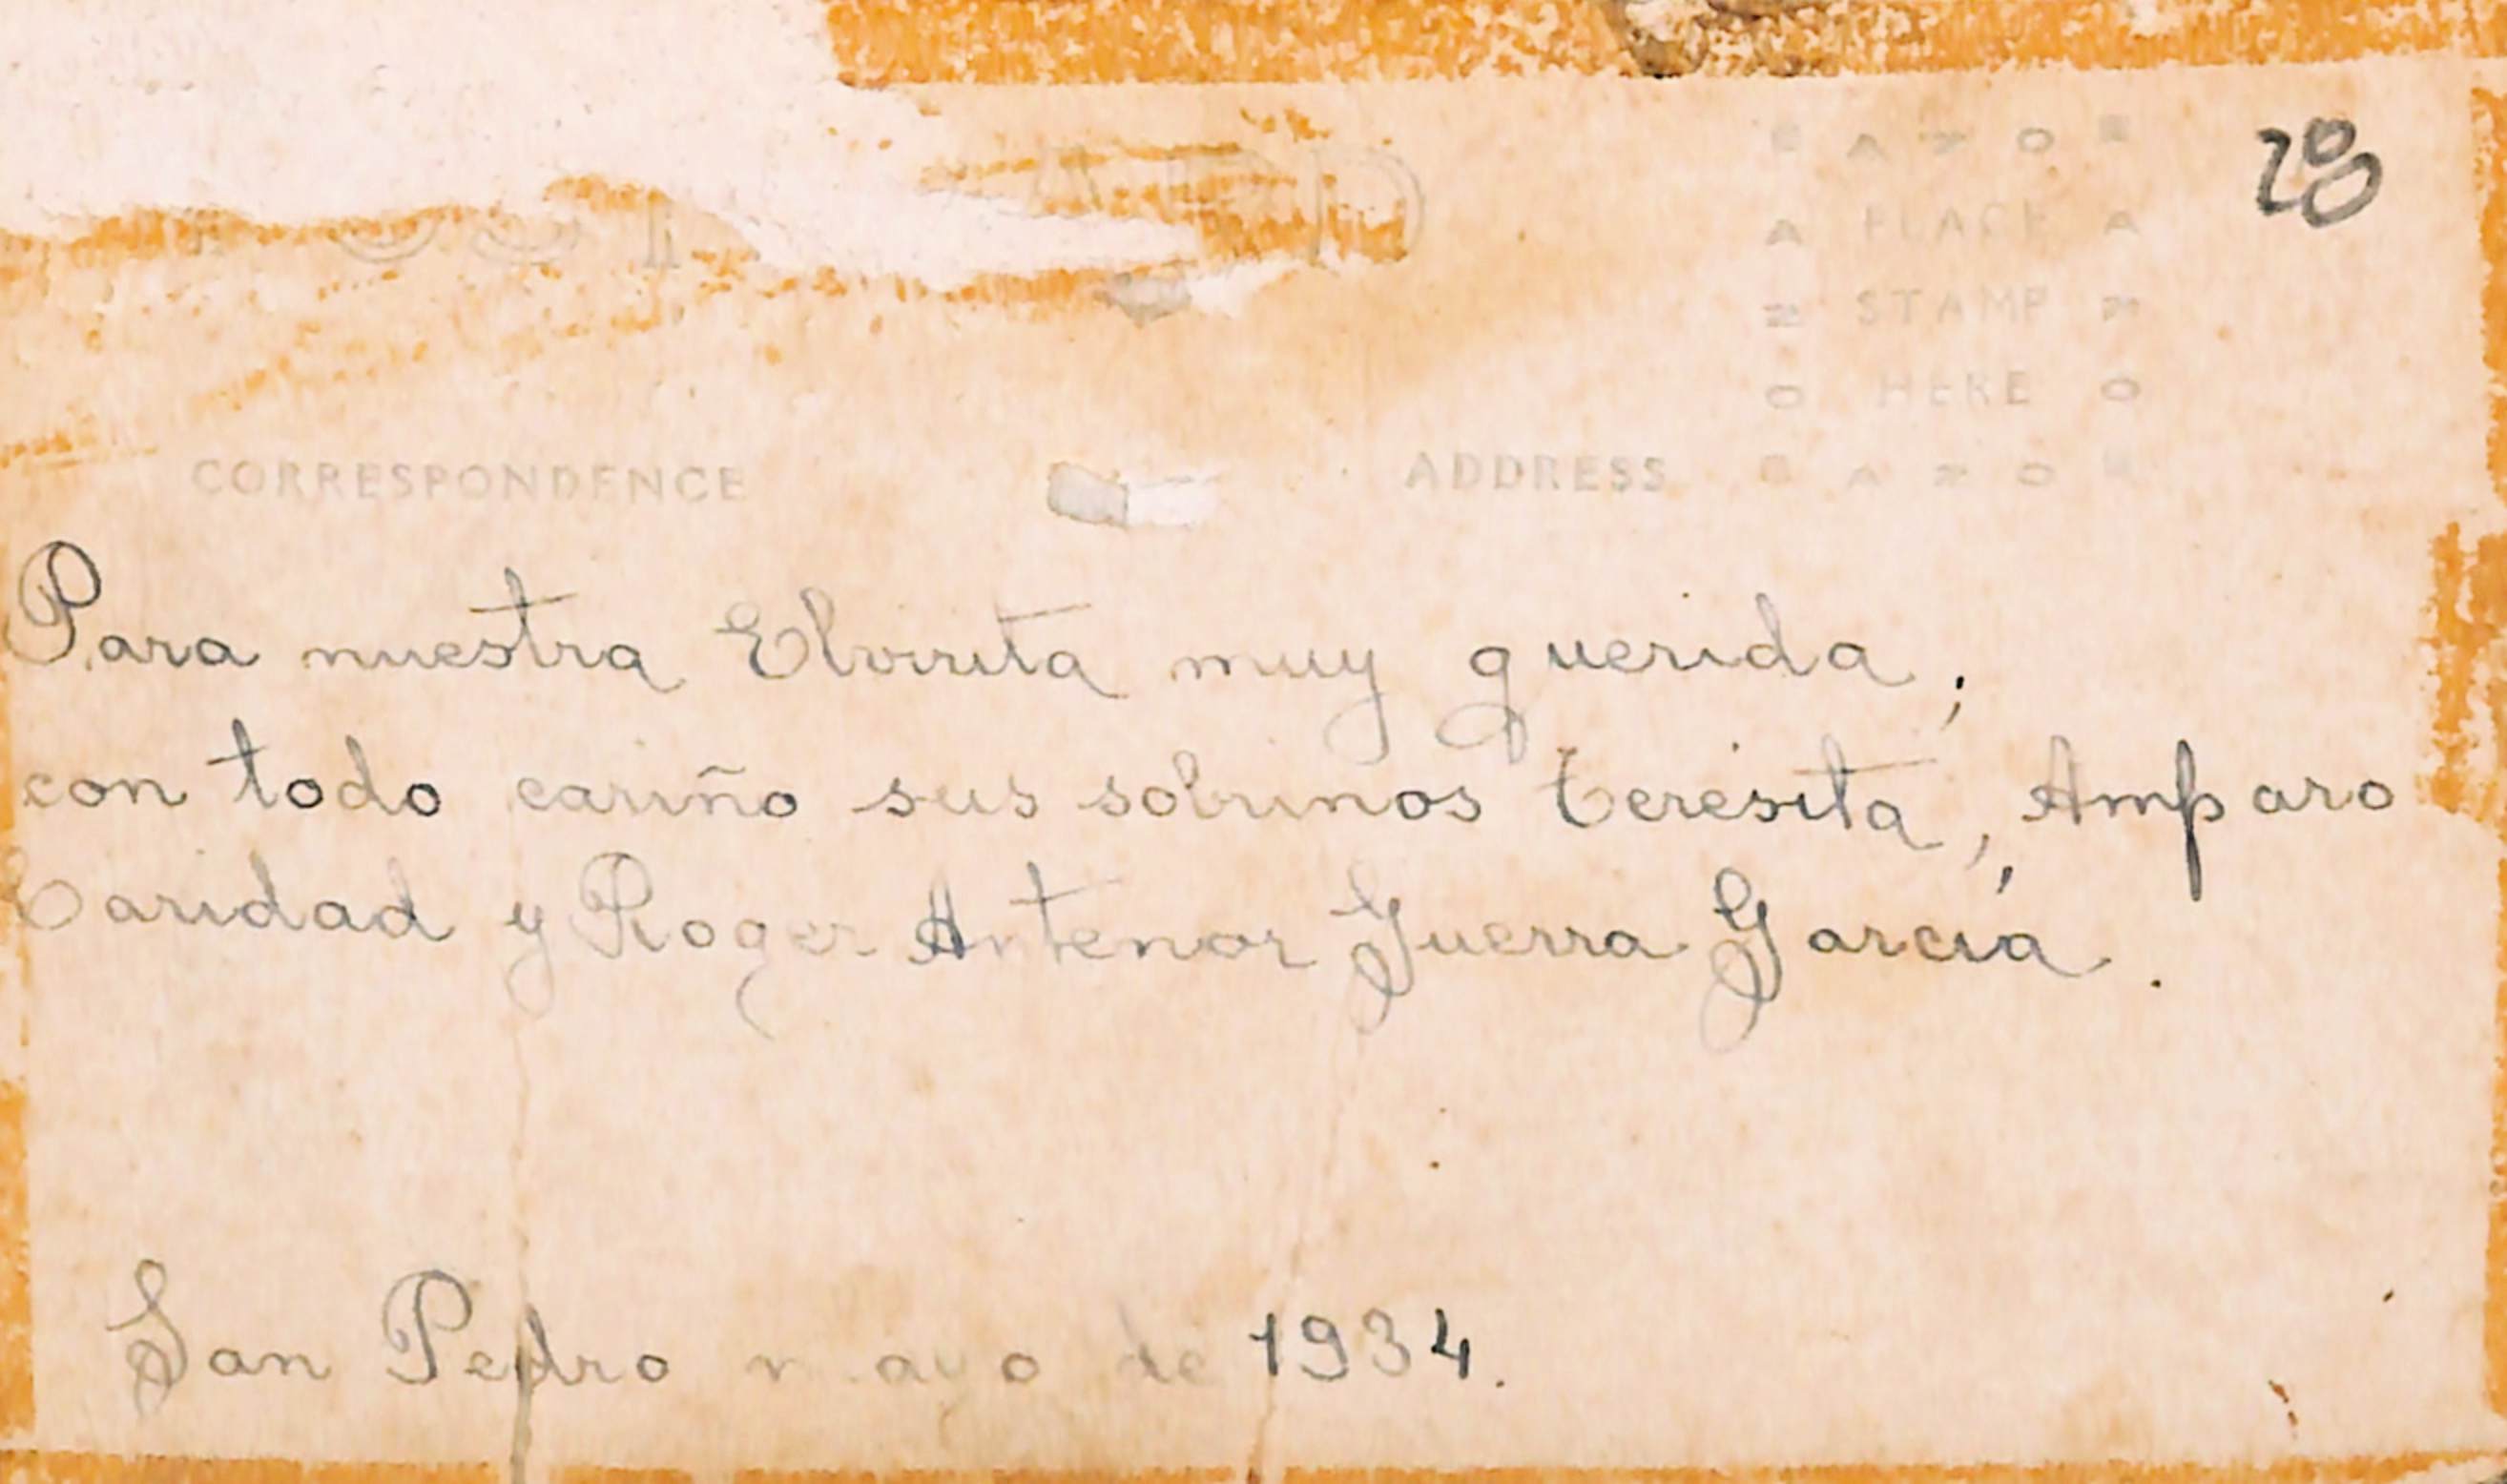 28
PLACE
STAMP
HERE
CORRESPONDENCE
ADDRESS
Para nuestra Elvirita muy querida,
con todo cariño sus sobrinos Teresita, Amparo,
Caridad y Roger Antenor Guerra García.
San Pedro mayo de 1934.